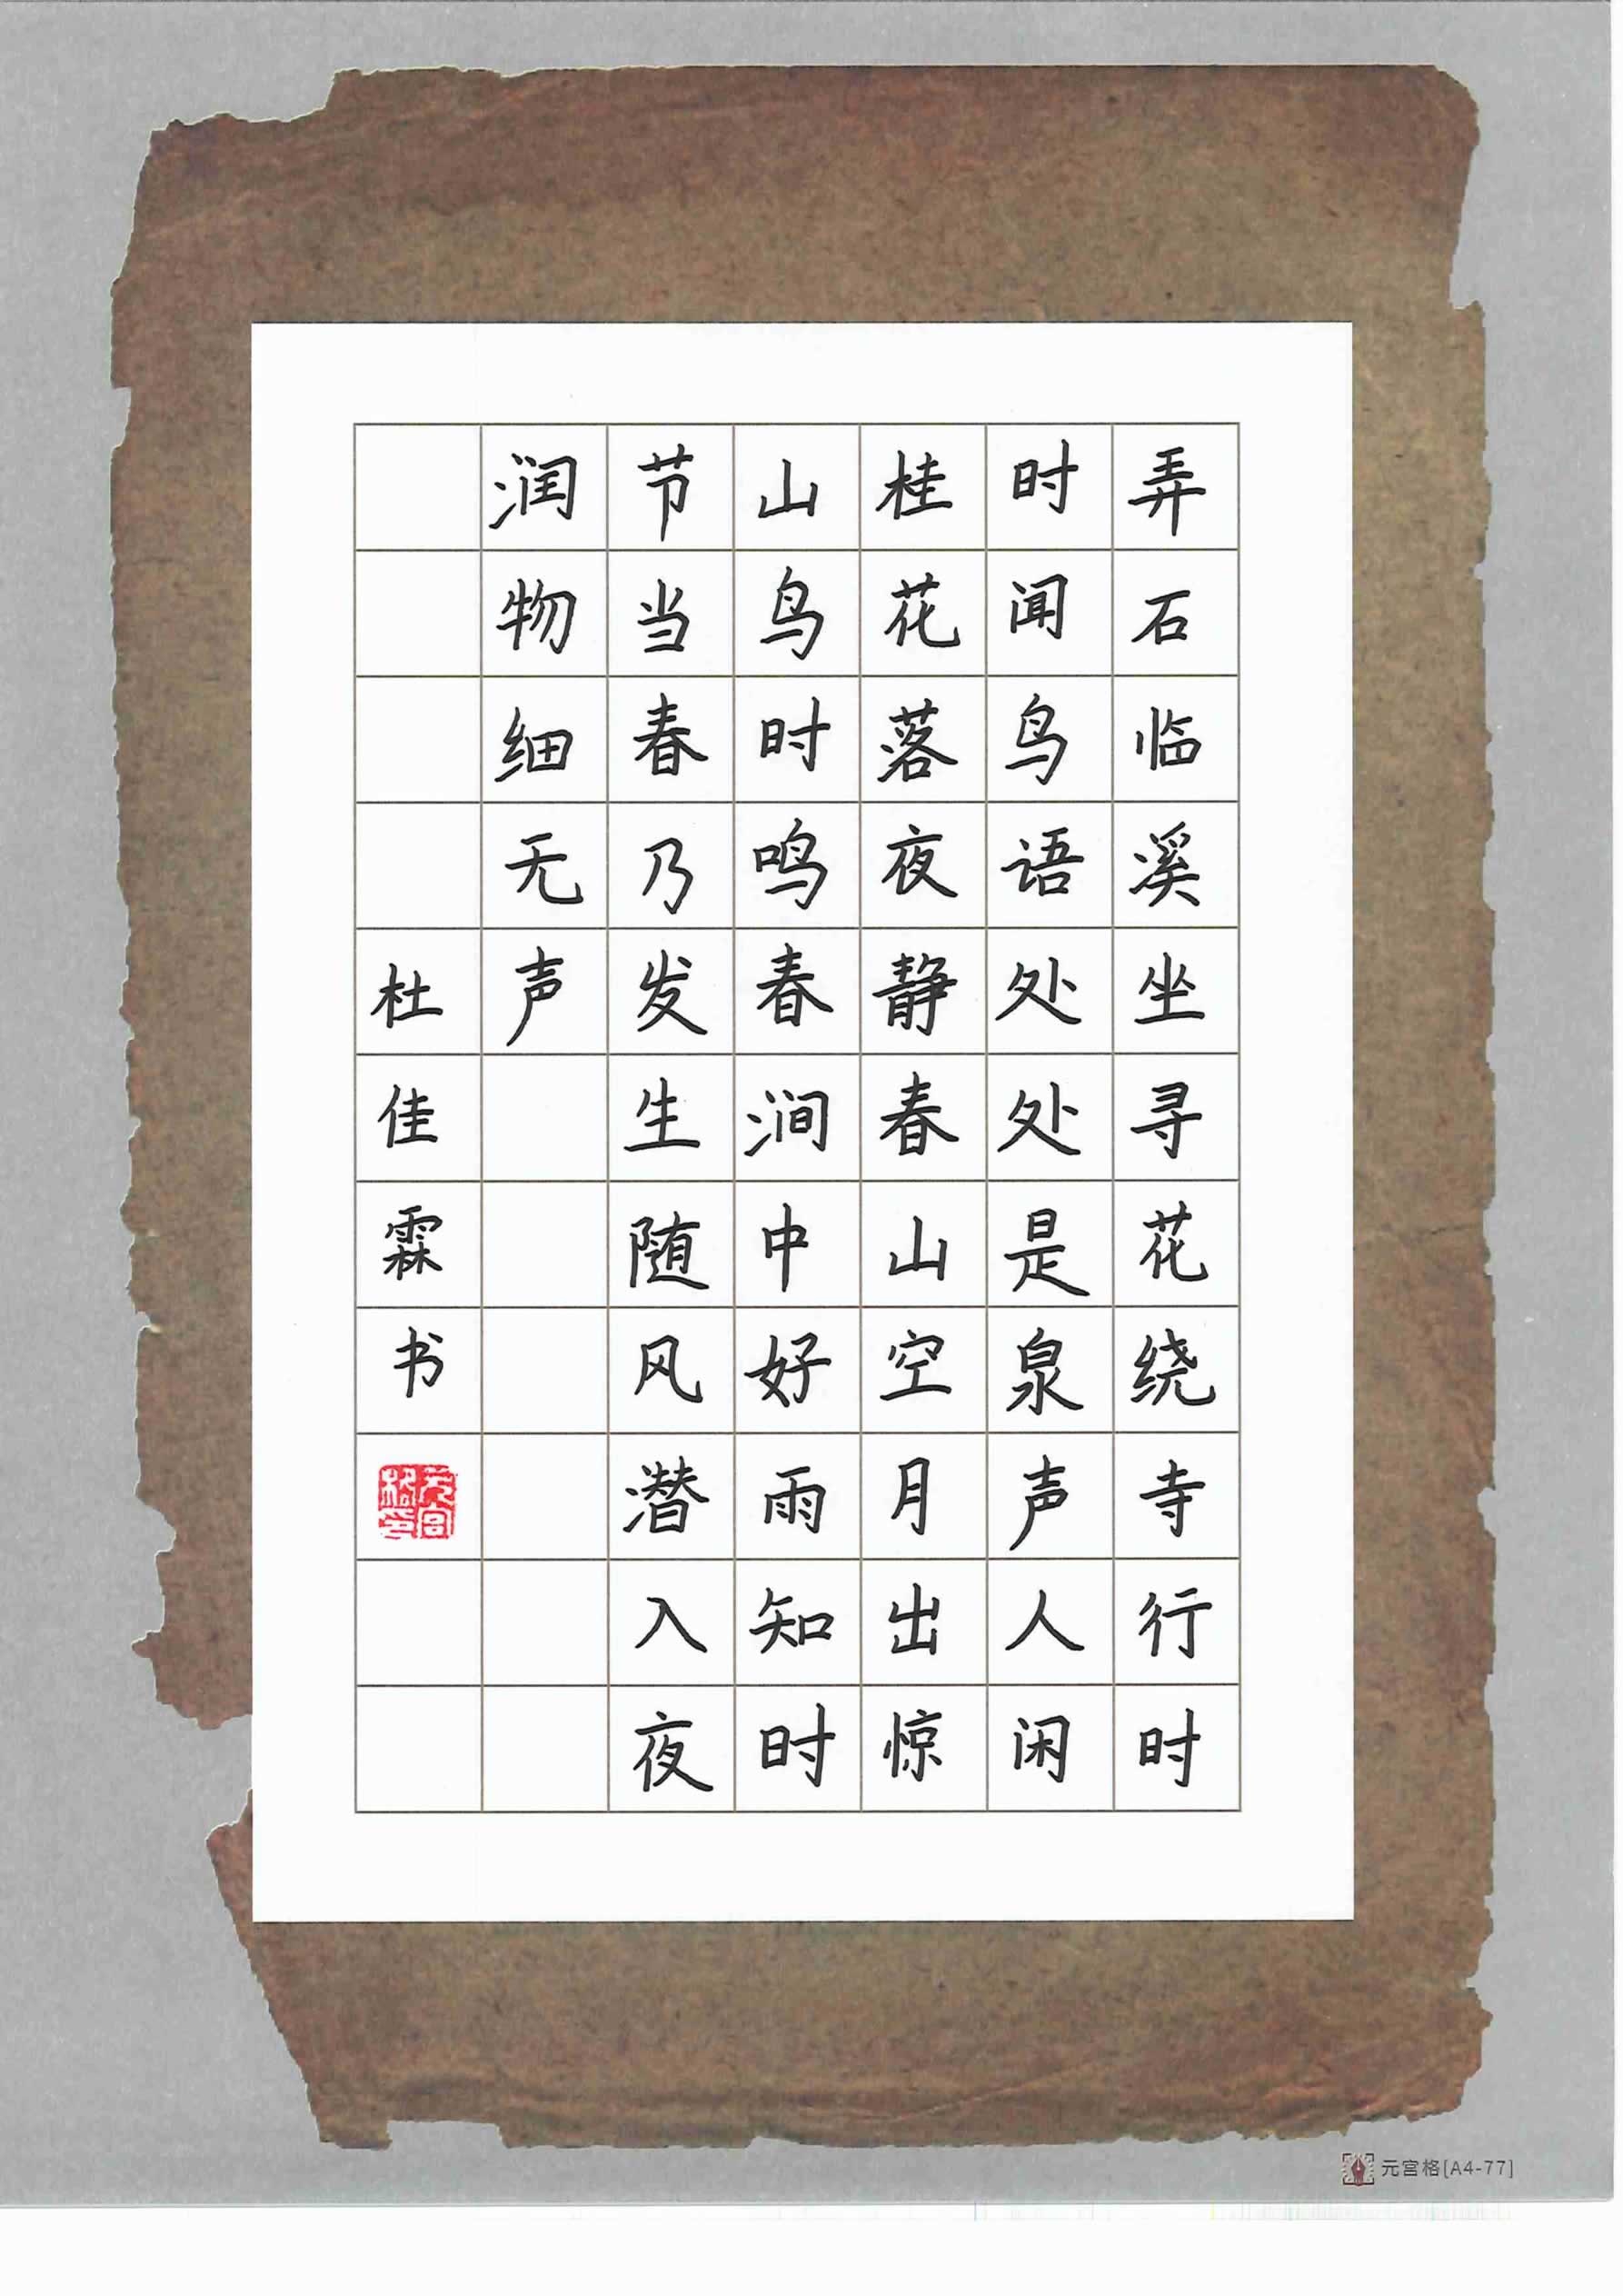 弄石临溪坐寻花绕寺行时
时闻鸟语处处是泉声人闲
桂花落夜静春山空月出惊
山鸟时鸣春涧中好雨知时
节当春乃发生随风潜入夜
润物细无声
杜佳霖书
元宫格印
元宫格[A4-77]